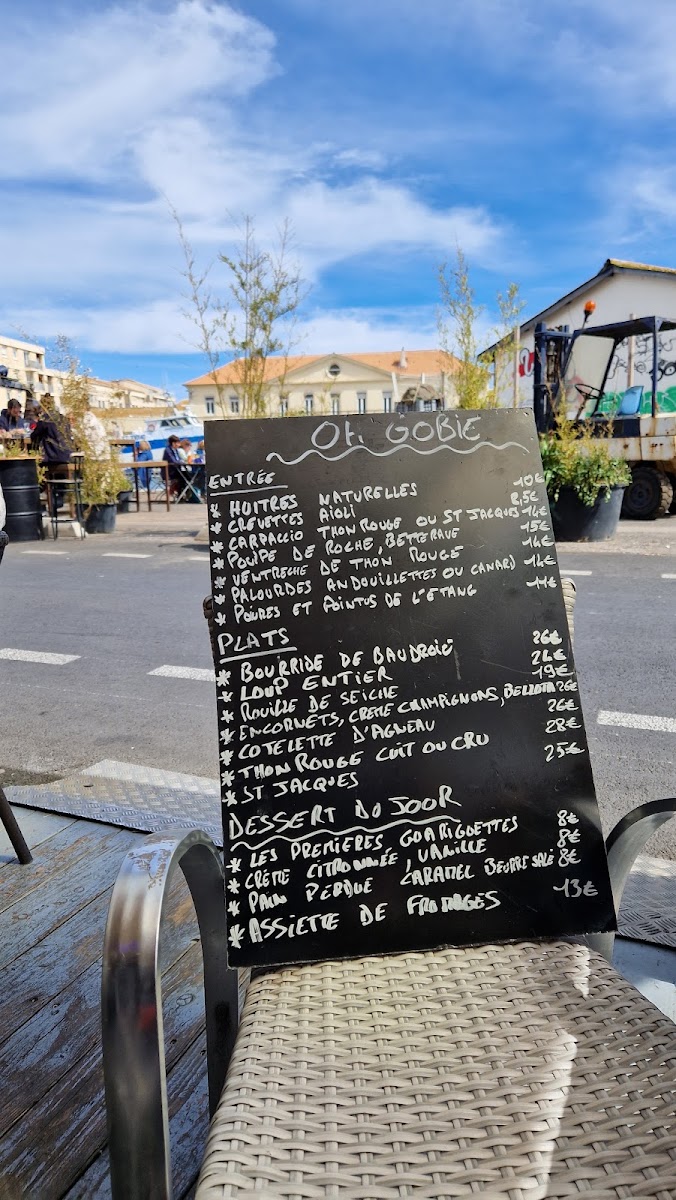 OH GOBIE
ENTRÉE
* HUITRES NATURELLES 10€
* CREVETTES AÏOLI 8,5€
* CARPACCIO THON ROUGE OU ST JACQUES 14€
* POULPE DE ROCHE, BETTERAVE 15€
* VENTRECHE DE THON ROUGE 14€
* PALOURDES ANDOUILLETTES OU CANARD 14€
* POURES ET POINTUS DE L'ETANG 11€
PLATS
* BOURRIDE DE BAUDROIE 26€
* LOUP ENTIER 24€
* ROUILLE DE SEICHE 19€
* ENCORNETS, CREME CHAMPIGNONS, BELLOTA 26€
* COTELETTE D'AGNEAU 26€
* THON ROUGE CUIT OU CRU 28€
* ST JACQUES 25€
DESSERT DU JOUR
* LES PREMIERES GUARIGUETTES 8€
* CRÈME CITRONNÉE, VANILLE 8€
* PAIN PERDUE CARAMEL BEURRE SALÉ 8€
* ASSIETTE DE FROMAGES 13€